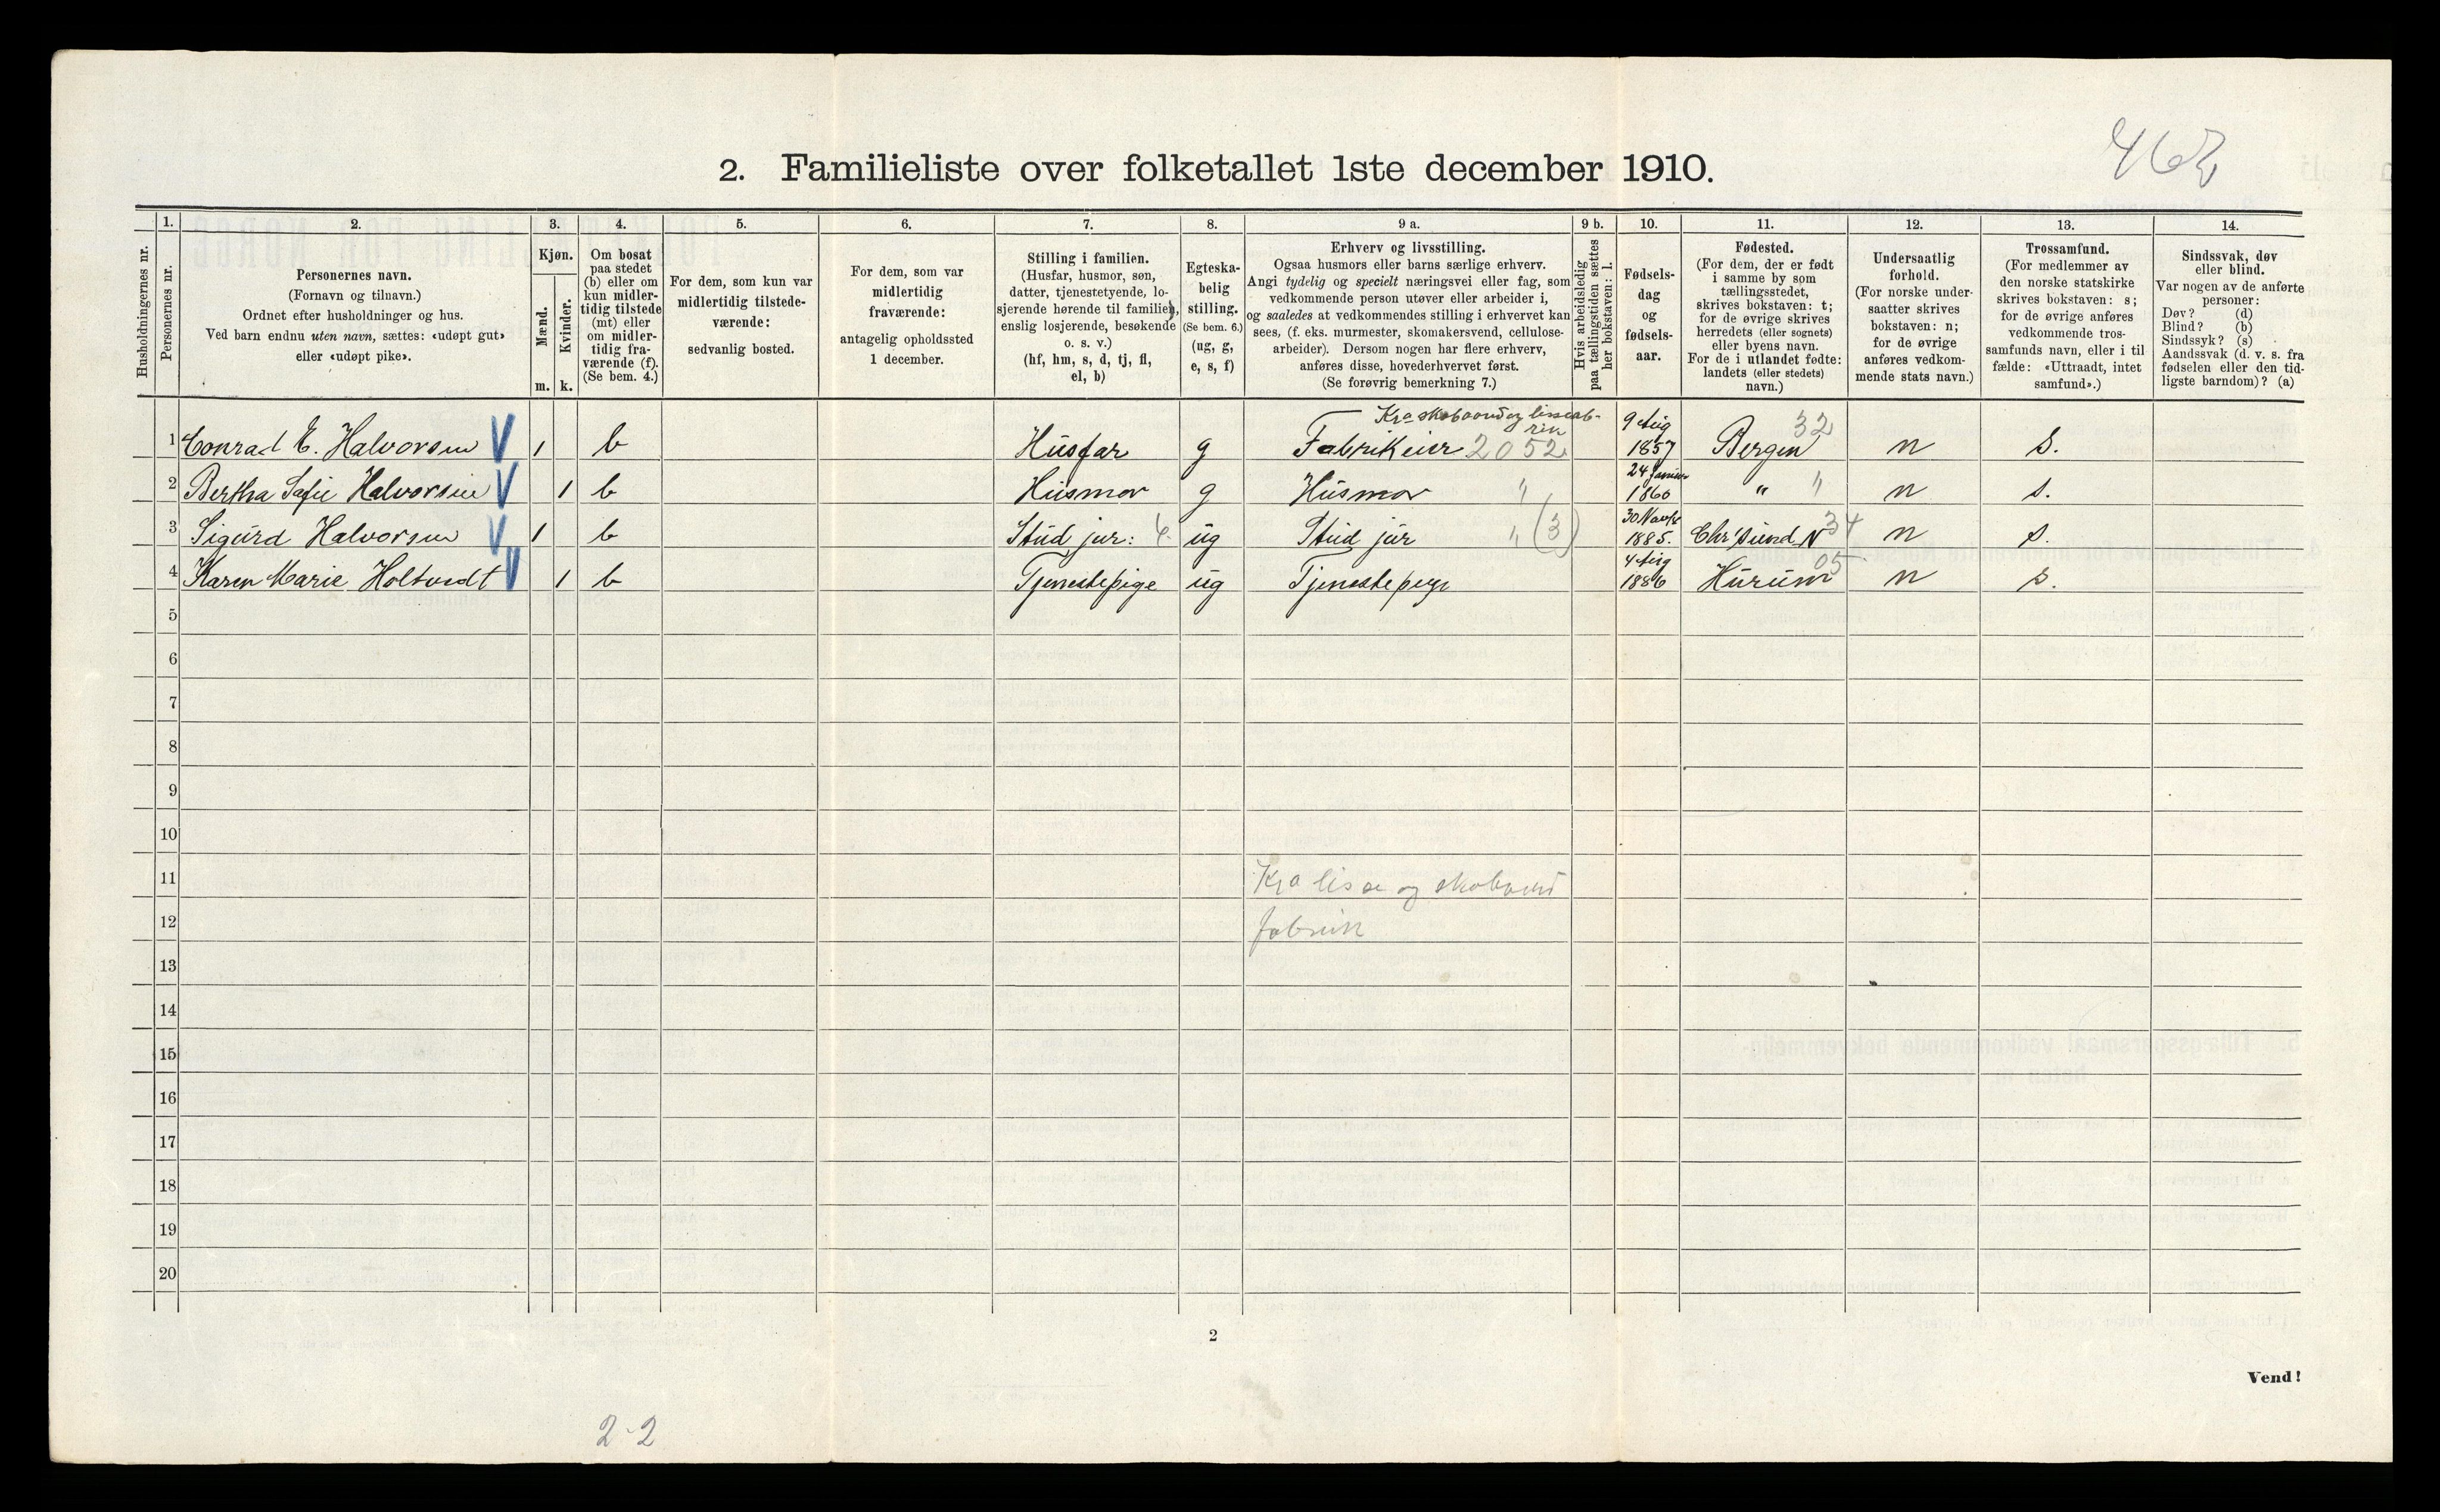 462
2. Familieliste over folketallet 1ste december 1910.
Husholdningernes nr.
1.
Personernes nr.
2.
Personernes navn.
(Fornavn og tilnavn.)
Ordnet efter husholdninger og hus.
Ved barn endnu uten navn, sættes: «udøpt gut»
eller «udøpt pike».
3.
Kjøn.
Mænd.
Kvinder.
m. k.
4.
Om bosat
paa stedet
(b) eller om
kun midler-
tidig tilstede
(mt) eller
om midler-
tidig fra-
værende (f).
(Se bem. 4.)
5.
For dem, som kun var
midlertidig tilstede-
værende:
sedvanlig bosted.
6.
For dem, som var
midlertidig
fraværende:
antagelig opholdssted
1 december.
7.
Stilling i familien.
(Husfar, husmor, søn,
datter, tjenestetyende, lo-
sjerende hørende til familien,
enslig losjerende, besøkende
o. s. v.)
(hf, hm, s, d, tj, fl,
el, b)
8.
Egteska-
belig
stilling.
(Se bem. 6.)
(ug, g,
e, s, f)
9 a.
Erhverv og livsstilling.
Ogsaa husmors eller barns særlige erhverv.
Angi tydelig og specielt næringsvei eller fag, som
vedkommende person utøver eller arbeider i,
og saaledes at vedkommendes stilling i erhvervet kan
sees, (f. eks. murmester, skomakersvend, cellulose-
arbeider). Dersom nogen har flere erhverv,
anføres disse, hovederhvervet først.
(Se forøvrig bemerkning 7.)
9 b.
Hvis arbeidsledig
paa tællingstiden sættes
her bokstaven: l.
10.
Fødsels-
dag
og
fødsels-
aar.
11.
Fødested.
(For dem, der er født
i samme by som
tællingsstedet,
skrives bokstaven: t;
for de øvrige skrives
herredets (eller sognets)
eller byens navn.
For de i utlandet fødte:
landets (eller stedets)
navn.)
12.
Undersaatlig
forhold.
(For norske under-
saatter skrives
bokstaven: n;
for de øvrige
anføres vedkom-
mende stats navn.)
13.
Trossamfund.
(For medlemmer av
den norske statskirke
skrives bokstaven: s;
for de øvrige anføres
vedkommende tros-
samfunds navn, eller i til-
fælde: «Uttraadt, intet
samfund».)
14.
Sindssvak, døv
eller blind.
Var nogen av de anførte
personer:
Døv? (d)
Blind? (b)
Sindssyk? (s)
Aandssvak (d. v. s. fra
fødselen eller den tid-
ligste barndom)? (a)
1 Conrad E. Halvorsen V 1 b Husfar g Kra skobaand og lissefab-rik Fabrikeier 2052 9 Aug 1857 Bergen 32 n s.
2 Bertha Sofie Halvorsen V 1 b Husmor g Husmor " 24 1860 " " n s.
3 Sigurd Halvorsen V 1 b Stud jur: ug Stud jur " (3) 30 1885. Chr'sund N 34 n s.
4 Karen Marie Holtvedt V 1 b Tjenestepige ug Tjenestepige 4 Aug 1886 Hurum 05 n s.
5
6
7
8
9
10
11 Kra lisse og skobaand
12 fabrik
13
14
15
16
17
18
19
20
2
Vend!
2-2